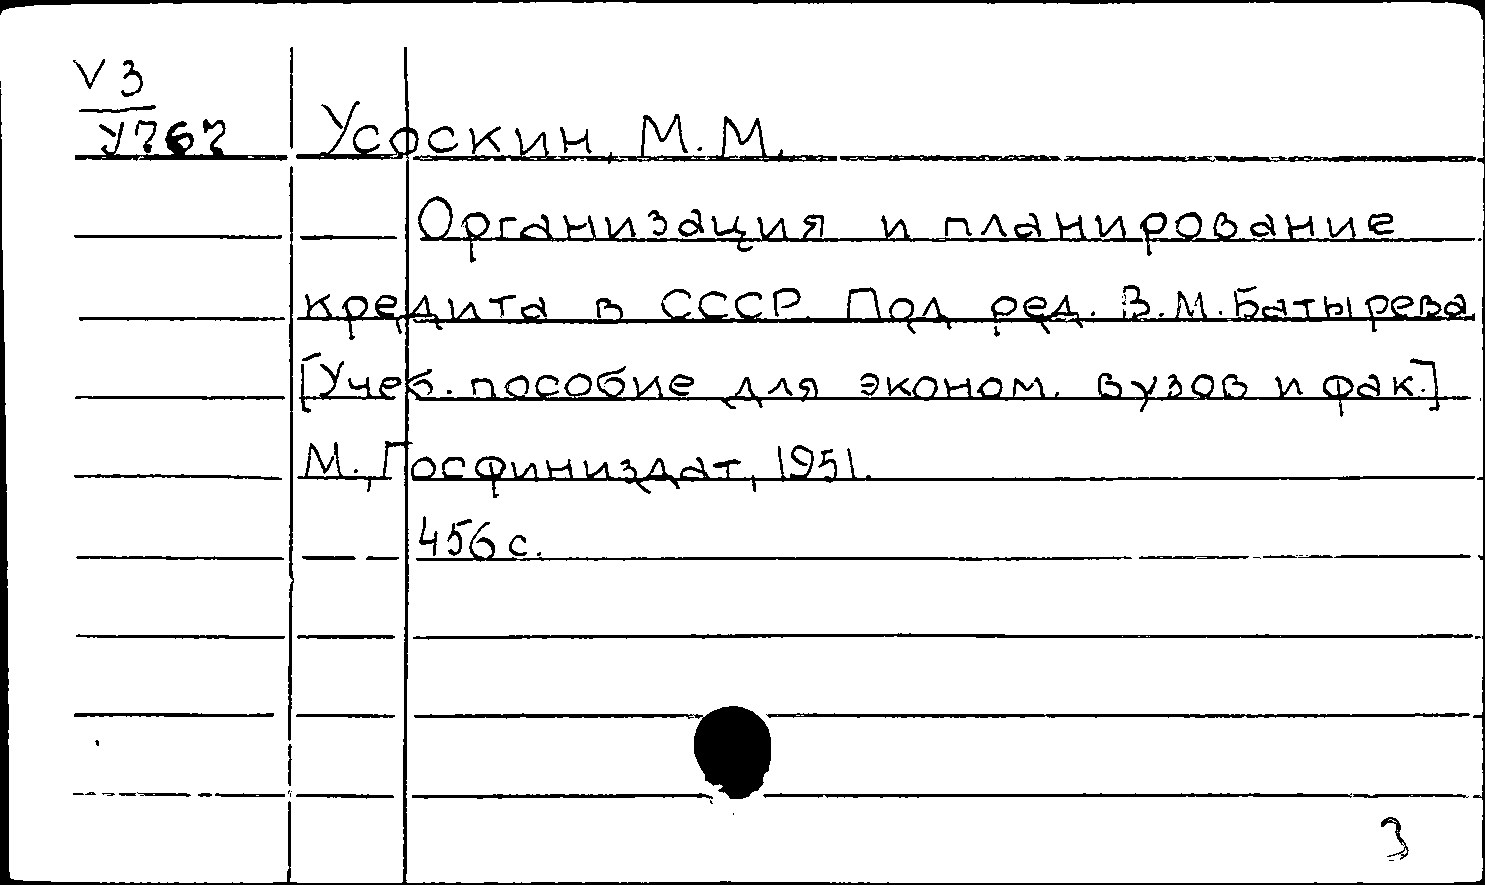 V3
У767
Усоскин, М. М.
Организация и планирование
кредита в СССР. Под ред. В.М.Батырева
[Учеб. пособие для эконом. вузов и фак.]
М., Госфиниздат, 1951.
456 с.
3